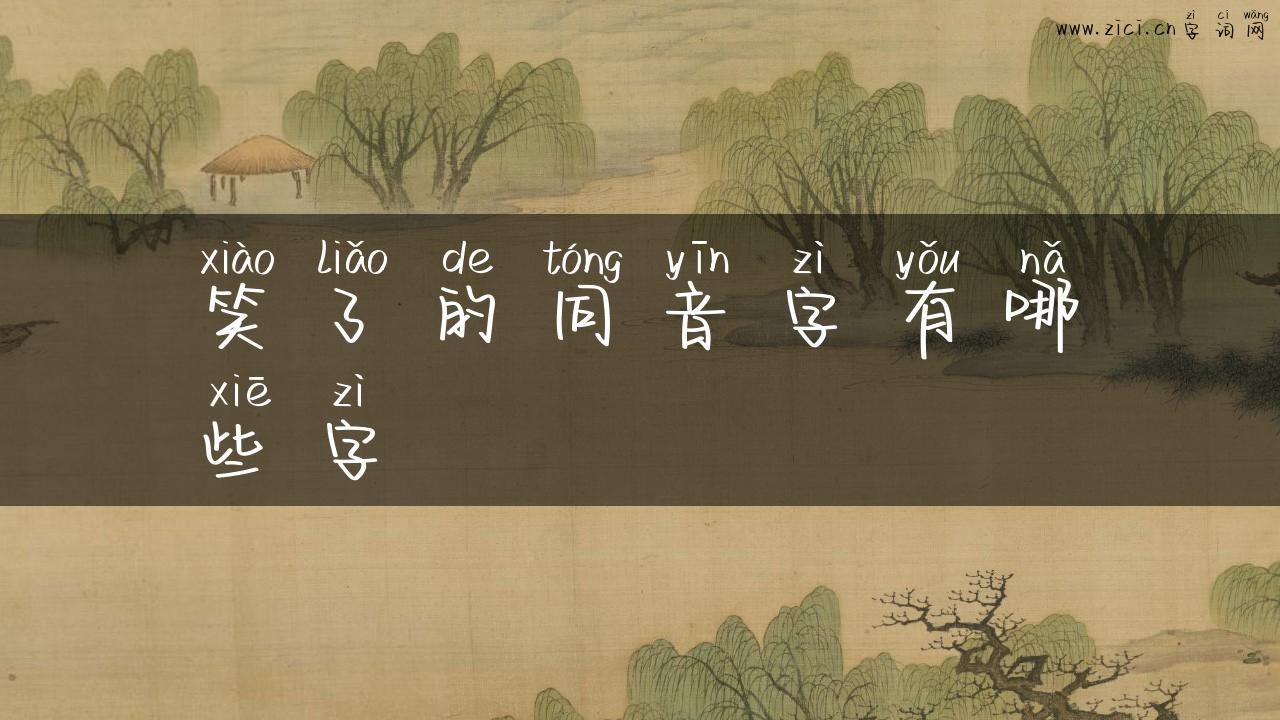 zì cí wǎng
www.zici.cn字词网
xiào liǎo de tóng yīn zì yǒu nǎ
笑了的同音字有哪
xiē zì
些字